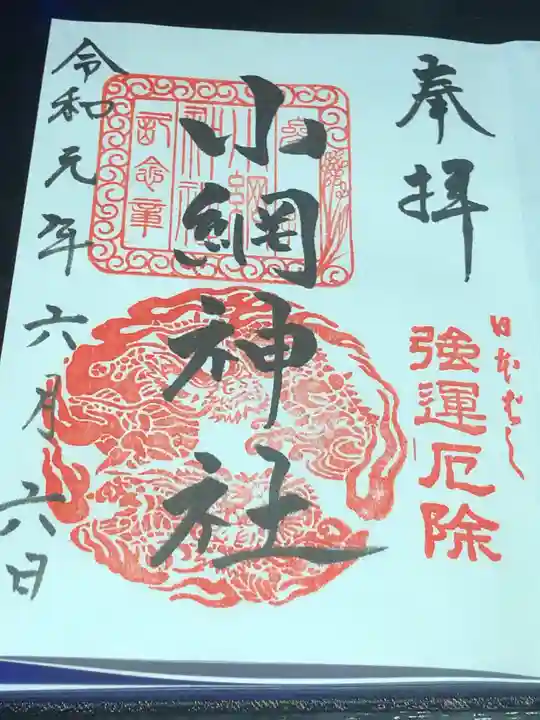 奉拝
日本ばし
強運厄除
小網神社
記念章
令和元年六月六日